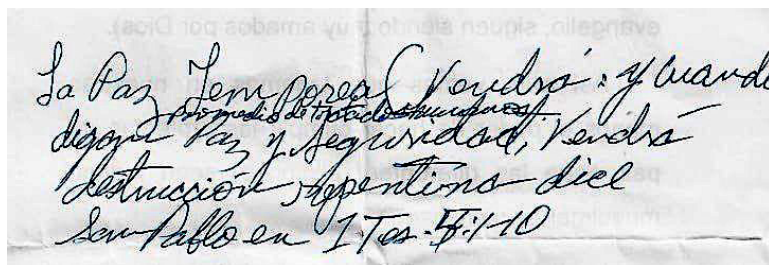 evangelio, siguen siendo muy amados por Dios).
La Paz Temporeal Vendrá: y cuando
promedio de tratados humanos
digan Paz y Seguridad, Vendrá
destrucción repentina dice
San Pablo en 1 Tes. 5:1-10